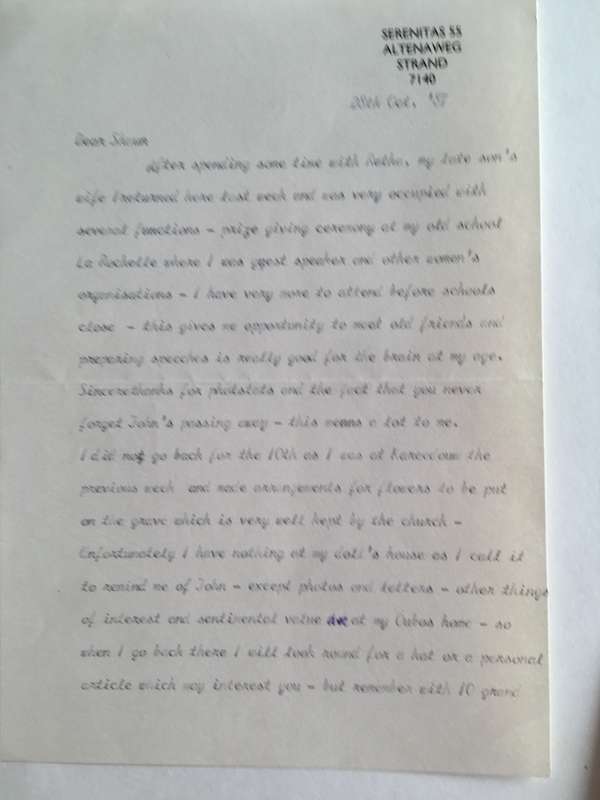 SERENITAS 55
ALTENAWEG
STRAND
7140
28th Oct. '87
Dear Shaun
After spending some time with Retha, my late son's
wife I returned here last week and was very occupied with
several functions - prize giving ceremony at my old school
La Rochelle where I was guest speaker and other women's
organisations - I have very more to attend before schools
close - this gives me opportunity to meet old friends and
preparing speeches is really good for the brain at my age.
Sincerethanks for photstats and the fact that you never
forget John's passing away - this means a lot to me.
I did not go back for the 10th as I was at the
previous week and made arrangements for flowers to be put
on the grave which is very well kept by the church -
Unfortunately I have nothing at my doll's house as I call it
to remind me of John - except photos and letters - other things
of interest and sentimental value are at my home - so
when I go back there I will look round for a hat or a personal
article which may interest you - but remember with 10 grand